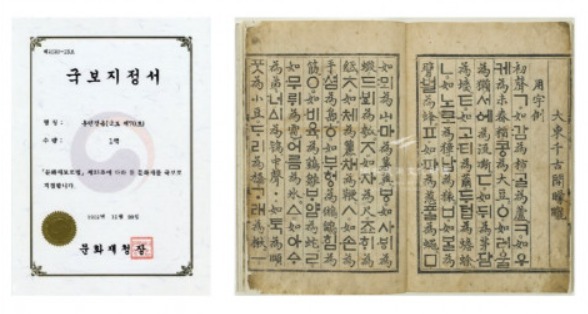 국보지정서
명 칭 : 훈민정음(국보 제70호)
수 량 : 1책
「문화재보호법」 제23조에 따라 위 문화재를 국보로
지정합니다.
1962년 12월 20일
문화재청장
大東千古開矇矓
用字例
初聲ㄱ如감為柿ᄀᆞᆯ為蘆ㅋ如우
케為未舂稻콩為大豆ㆁ如러울
為獺서에為流澌ㄷ如뒤為茅담
為墻ㅌ如고티為繭두텁為蟾蜍
ㄴ如노로為獐납為猿ㅂ如ᄇᆞᆯ為
臂벌為蜂ㅍ如파為葱ᄑᆞᆯ為蠅ㅁ
如뫼為山마為薯藇ㅸ如사ᄫᅵ為
蝦드ᄫᅴ為瓠ㅈ如자為尺죠ᄒᆡ為
紙ㅊ如체為籭채為鞭ㅅ如손為
手셤為島ㅎ如부헝為鵂鶹힘為
筋ㅇ如비육為鷄雛ᄇᆞ얌為蛇ㄹ
如무뤼為雹어름為氷ㅿ如아ᅀᆞ
為弟너ᅀᅵ為鴇中聲ㆍ如ᄐᆞᆨ為頤
ᄑᆞᆺ為小豆ᄃᆞ리為橋ᄀᆞ래為楸ㅡ